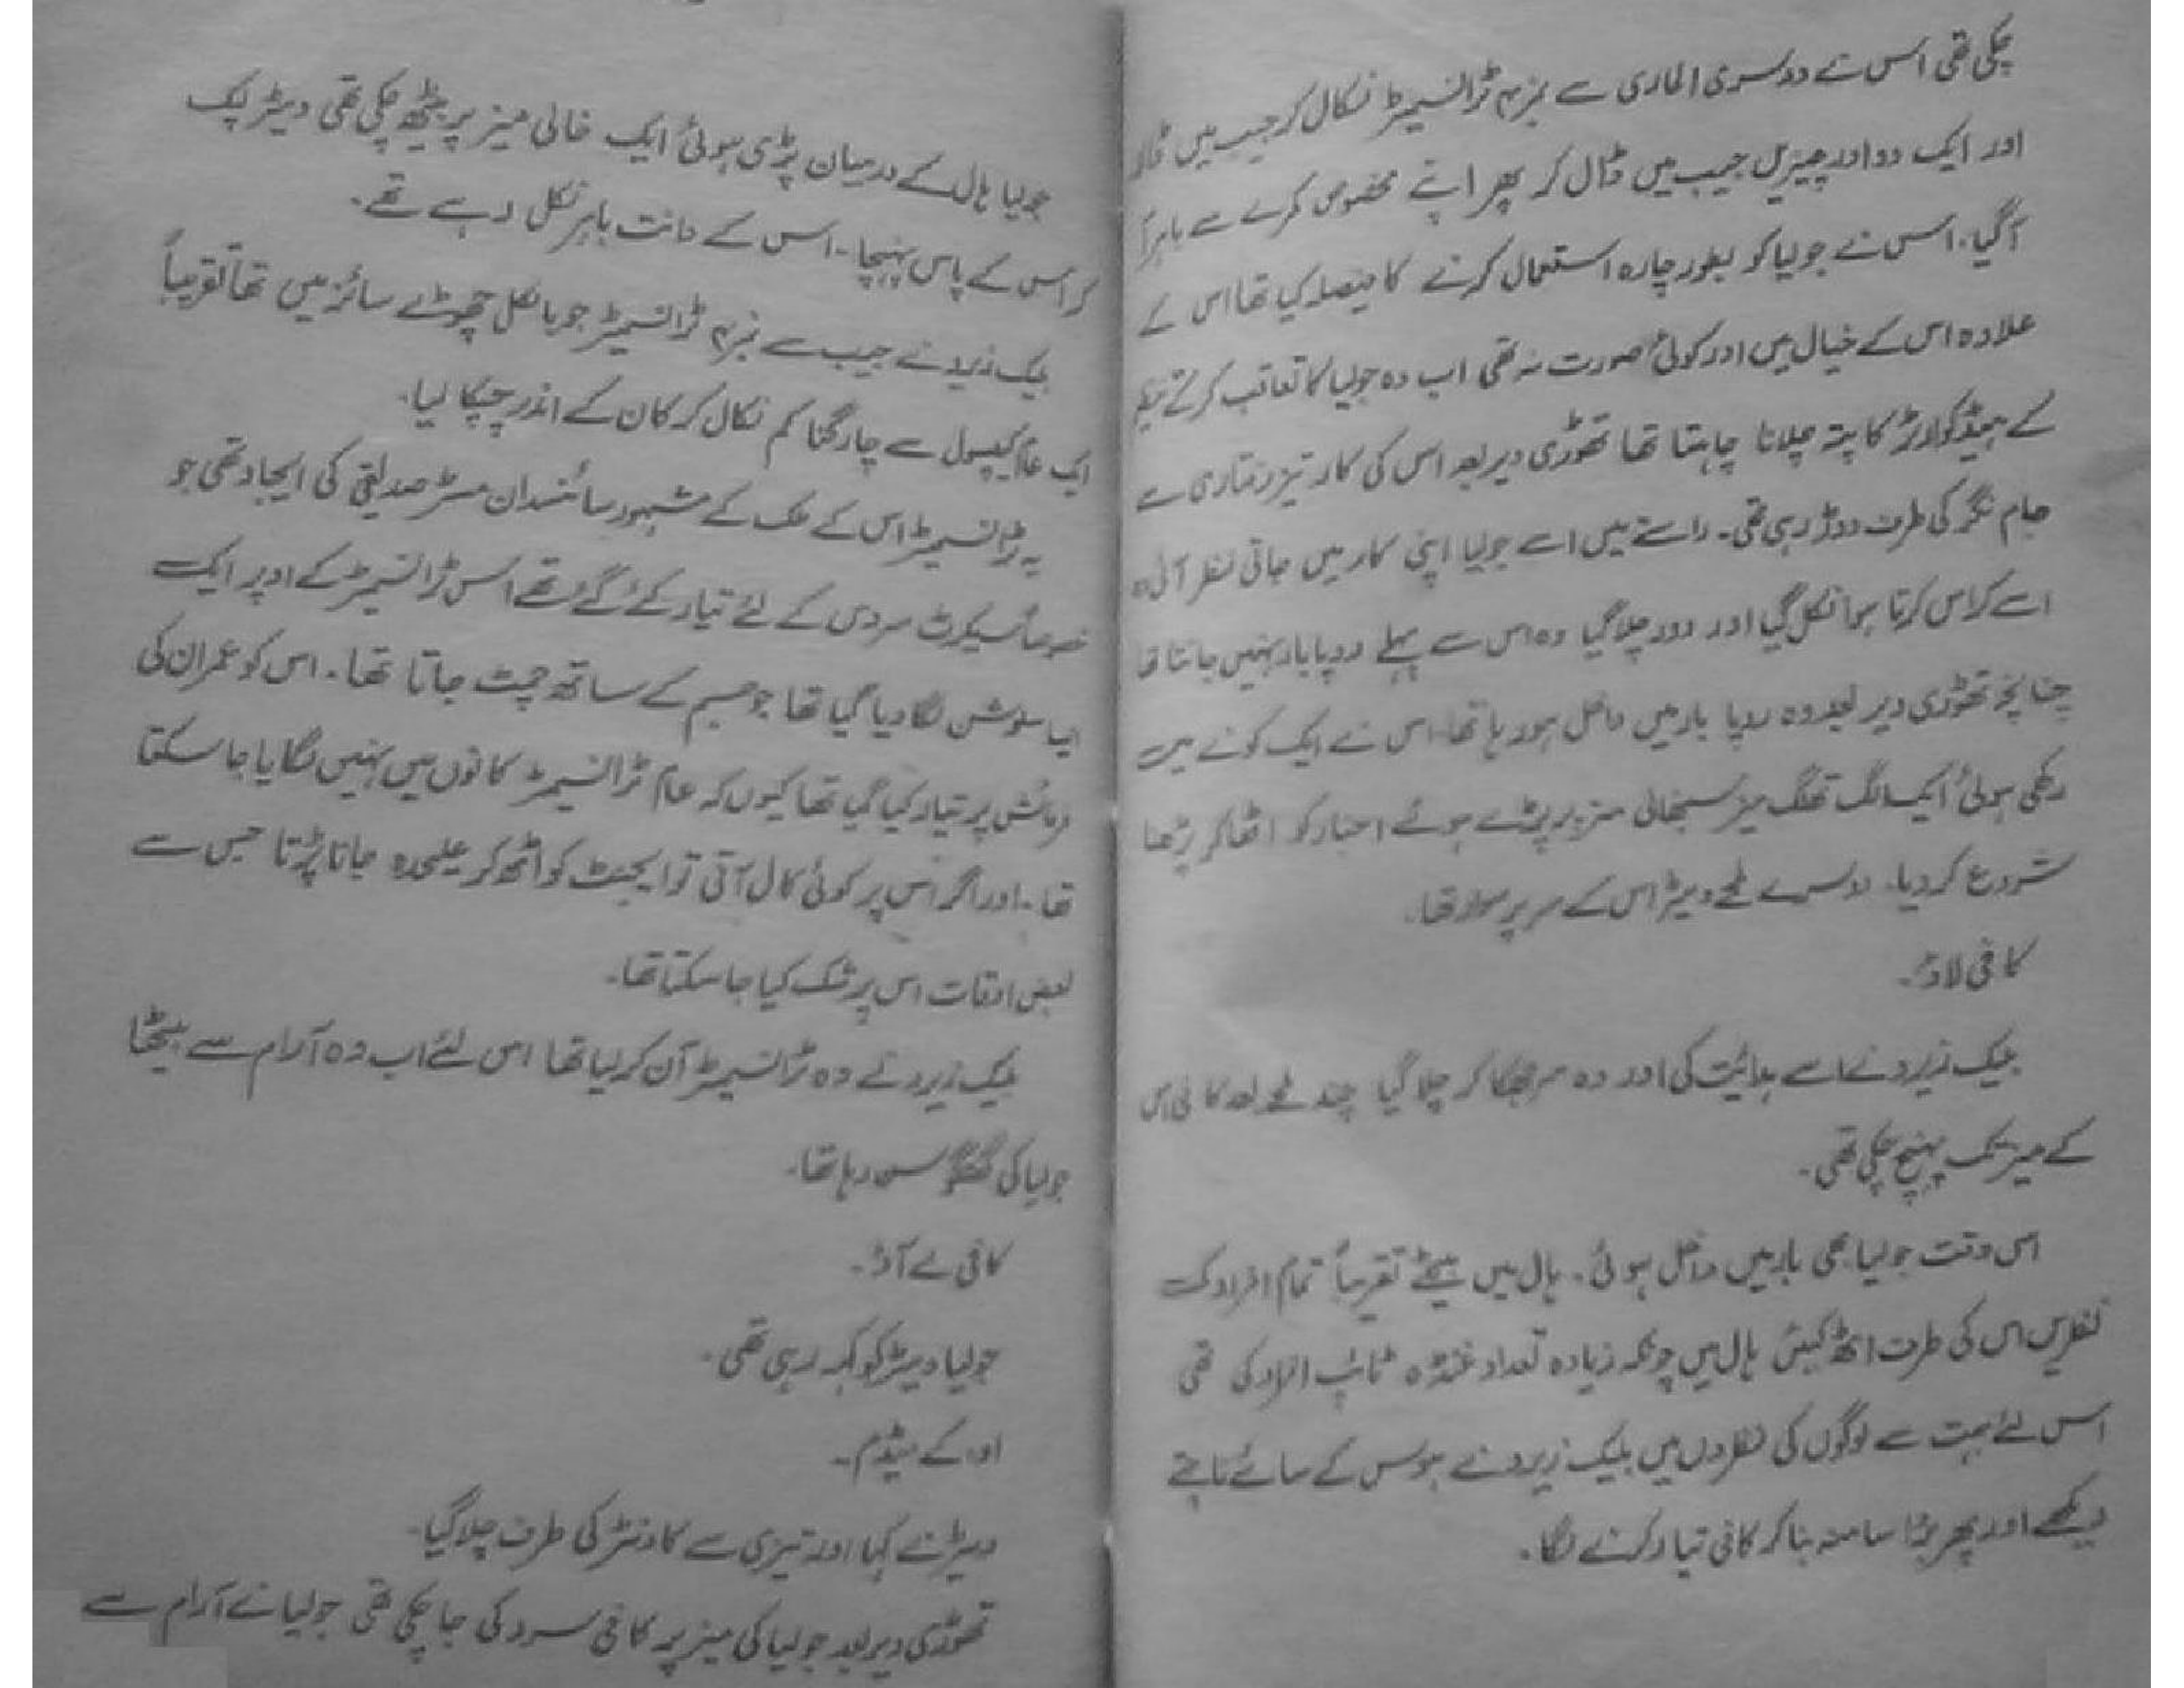 چکی تھی اس نے دوسری الماری سے نمبر ۴ ٹرانسمیٹر نکال کر جیب میں ڈالا
اور ایک دو اور چیزیں جیب میں ڈال کر پھر اپنے مخصوص کمرے سے باہر آ
گیا۔ اس نے جولیا کو بطور چارہ استعمال کرنے کا فیصلہ کیا تھا اس کے
علاوہ اس کے خیال میں اور کوئی صورت نہ تھی اب وہ جولیا کا تعاقب کرتے
کے ہیڈکوارٹر کا پتہ چلانا چاہتا تھا تھوڑی دیر بعد اس کی کار تیز رفتاری سے
جام نگر کی طرف دوڑ رہی تھی۔ راستے میں اسے جولیا اپنی کار میں جاتی نظر آئی وہ
اسے کراس کرتا ہوا نکل گیا اور دور چلا گیا وہ اس سے پہلے روپا بار نہیں جانتا تھا
چنانچہ تھوڑی دیر بعد وہ روپا بار میں داخل ہو رہا تھا۔ اس نے ایک کونے میں
رکھی ہوئی ایک الگ تھلگ میز سنبھالی میز پر پڑے ہوئے اخبار کو اٹھا کر پڑھنا
شروع کر دیا۔ دوسرے لمحے ویٹر اس کے سر پر سوار تھا۔
کافی لاؤ۔
بلیک زیرو نے اسے ہدائیت کی اور وہ سر جھکا کر چلا گیا چند لمحے بعد کافی اس
کے میز تک پہنچ چکی تھی۔
اس وقت جولیا بھی بار میں داخل ہوئی۔ ہال میں بیٹھے تقریباً تمام افراد کی
نظریں اس کی طرف اٹھ گیئں ہال میں چونکہ زیادہ تعداد غنڈہ ٹائپ افراد کی تھی
اس لئے بہت سے لوگوں کی نظروں میں بلیک زیرو نے ہوس کے سائے ناچتے
دیکھے اور پھر بڑا سا منہ بنا کر کافی تیار کرنے لگا۔
جولیا ہال کے درمیان پڑی ہوئی ایک خالی میز پر بیٹھ چکی تھی ویٹر لپک
کر اس کے پاس پہنچا۔ اس کے دانت باہر نکل رہے تھے۔
بلیک زیرو نے جیب سے نمبر ۴ ٹرانسمیٹر جو بالکل چھوٹے سائز میں تھا تقریباً
ایک عام کیپسول سے چار گنا کم نکال کر کان کے اندر چپکا لیا۔
یہ ٹرانسمیٹر اس کے ملک کے مشہور سائنسدان مسٹر صدیقی کی ایجاد تھی جو
خصوصاً سیکرٹ سروس کے لئے تیار کئے گئے تھے اس ٹرانسمیٹر کے اوپر ایک
ایسا سلوشن لگا دیا گیا تھا جو جسم کے ساتھ چمٹ جاتا تھا۔ اس کو عمران کی
فرمائش پر تیار کیا گیا تھا کیوں کہ عام ٹرانسمیٹر کانوں میں نہیں لگایا جا سکتا
تھا۔ اور اگر اس پر کوئی کال آتی تو ایجنٹ کو اٹھ کر علیحدہ جانا پڑتا جس سے
بعض اوقات اس پر شک کیا جا سکتا تھا۔
بلیک زیرو نے وہ ٹرانسمیٹر آن کر لیا تھا اس لئے اب وہ آرام سے بیٹھا
جولیا کی گفتگو سن رہا تھا۔
کافی لے آؤ۔
جولیا ویٹر کو کہہ رہی تھی۔
او۔کے میڈم۔
ویٹر نے کہا اور تیزی سے کاونٹر کی طرف چلا گیا۔
تھوڑی دیر بعد جولیا کی میز پر کافی سرو کی جا چکی تھی جولیا نے آرام سے